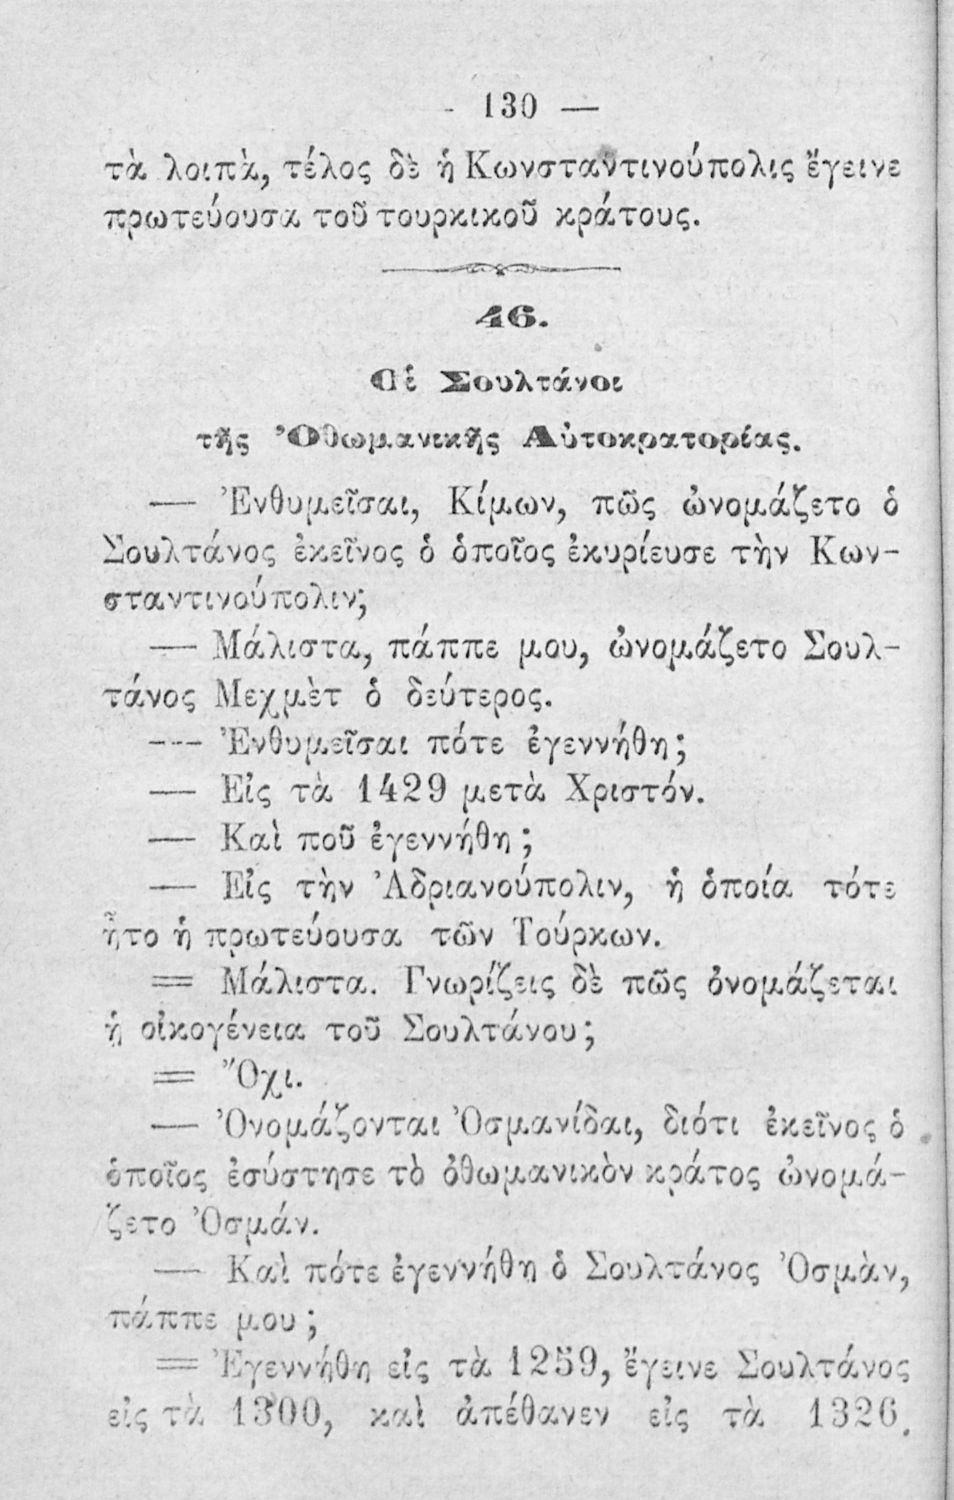 - 130 —
τὰ λοιπὰ, τέλος δὲ ἡ Κωνσταντινούπολις ἔγεινε
πρωτεύουσα τοῦ τουρκικοῦ κράτους.
46.
Οἱ Σουλτάνοι
τῆς Ὀθωμανικῆς Αὐτοκρατορίας.
— Ἐνθυμεῖσαι, Κίμων, πῶς ὠνομάζετο ὁ
Σουλτάνος ἐκεῖνος ὁ ὁποῖος ἐκυρίευσε τὴν Κων-
σταντινούπολιν;
— Μάλιστα, πάππε μου, ὠνομάζετο Σουλ-
τάνος Μεχμὲτ ὁ δεύτερος.
— Ἐνθυμεῖσαι πότε ἐγεννήθη;
— Εἰς τὰ 1429 μετὰ Χριστόν.
— Καὶ ποῦ ἐγεννήθη;
— Εἰς τὴν Ἀδριανούπολιν, ἡ ὁποία τότε
ἦτο ἡ πρωτεύουσα τῶν Τούρκων.
= Μάλιστα. Γνωρίζεις δὲ πῶς ὀνομάζεται
ἡ οἰκογένεια τοῦ Σουλτάνου;
= Ὄχι.
— Ὀνομάζονται Ὀσμανίδαι, διότι ἐκεῖνος ὁ
ὁποῖος ἐσύστησε τὸ ὀθωμανικὸν κράτος ὠνομά-
ζετο Ὀσμάν.
— Καὶ πότε ἐγεννήθη ὁ Σουλτάνος Ὀσμὰν,
πάππε μου;
= Ἐγεννήθη εἰς τὰ 1259, ἔγεινε Σουλτάνος
εἰς τὰ 1300, καὶ ἀπέθανεν εἰς τὰ 1326.